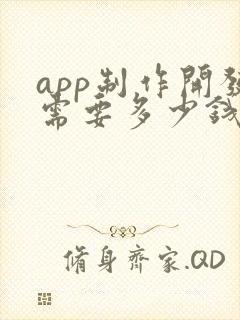 app制作開發
需要多少錢
脩身齊家.QD